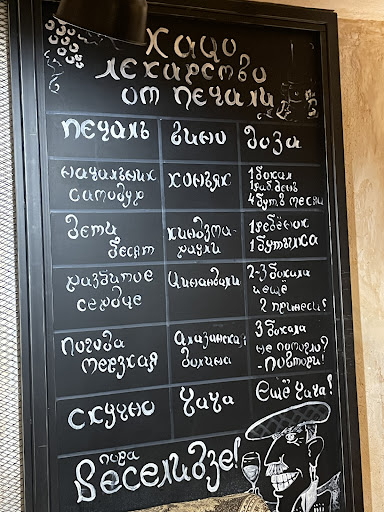 Кацо
лекарство
от печали
печаль вино доза
начальник самодур коньяк 1 бокал 1 раб день 4 бут в месяц
дети бесят киндзмараули 1 ребёнок 1 бутылка
разбитое сердце Цинандали 2-3 бокала и ещё 2 принеси!
Погода мерзкая Алазанская долина 3 бокала не помогло? -Повтори!
скучно чача Ещё чача!
пора
Веселидзе!